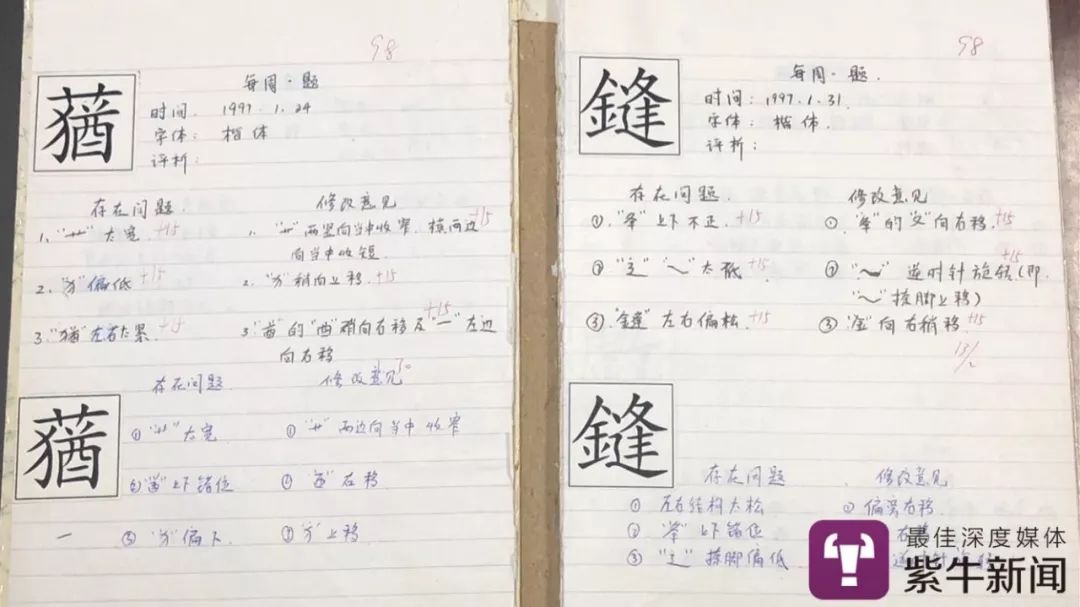 98
蕕
每周·题
时间. 1997.1.24
字体: 楷体
评析:
存在问题. 修改意见
1. "艹"太宽. +15 1. "艹"两竖向当中收窄, 横两边
向当中收短.
2. "犭"偏低 +15 2. "犭"稍向上移. +15
3. "猶"左右太累 +15 3. "酋"的"酉"稍向右移及"一"左边 +15
向右移
存在问题. 修改意见
蕕
① "艹"太宽 ① "艹"两边向当中收窄
② 上下错位 ② 右移
③ "犭"偏下. ③ "犭"上移
98
鏠
每周·题.
时间: 1997.1.31.
字体: 楷体.
评析:
存在问题. 修改意见
①. "夆"上下不正. +15 ①. "夆"的"夂"向右移. +15
② "辶" "㇏"太低 +15 ② "㇏" 逆时针旋转(即 +15
"㇏"捺脚上移)
③ "鏠"左右偏松. +15 ③ "金"向右稍移. +15
13/1
鏠
存在问题 修改意见
① 左右结构太松 ① 偏旁右移.
② "夆"上下错位 右移
③ "辶"捺脚偏低
最佳深度媒体
紫牛新闻